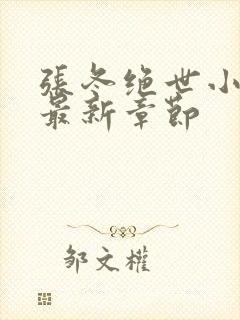 張冬绝世小
最新章節
邹文權